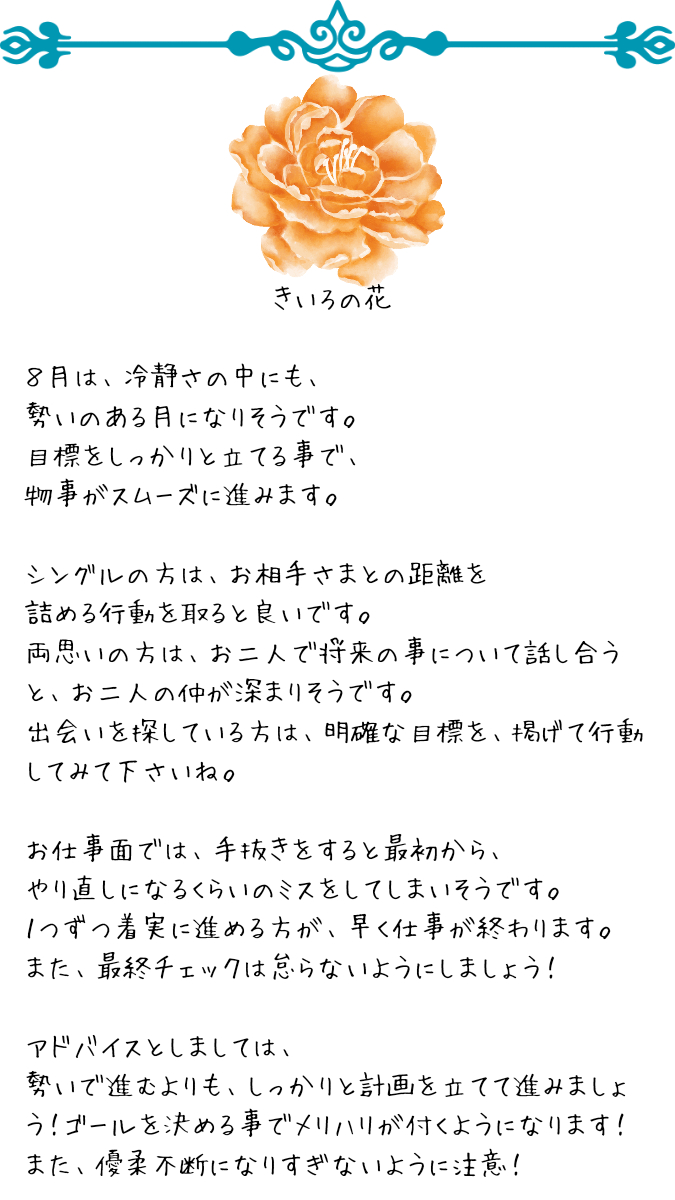 きいろの花
8月は、冷静さの中にも、
勢いのある月になりそうです。
目標をしっかりと立てる事で、
物事がスムーズに進みます。
シングルの方は、お相手さまとの距離を
詰める行動を取ると良いです。
両思いの方は、お二人で将来の事について話し合う
と、お二人の仲が深まりそうです。
出会いを探している方は、明確な目標を、掲げて行動
してみて下さいね。
お仕事面では、手抜きをすると最初から、
やり直しになるくらいのミスをしてしまいそうです。
1つずつ着実に進める方が、早く仕事が終わります。
また、最終チェックは怠らないようにしましょう!
アドバイスとしましては、
勢いで進むよりも、しっかりと計画を立てて進みましょ
う!ゴールを決める事でメリハリが付くようになります!
また、優柔不断になりすぎないように注意!